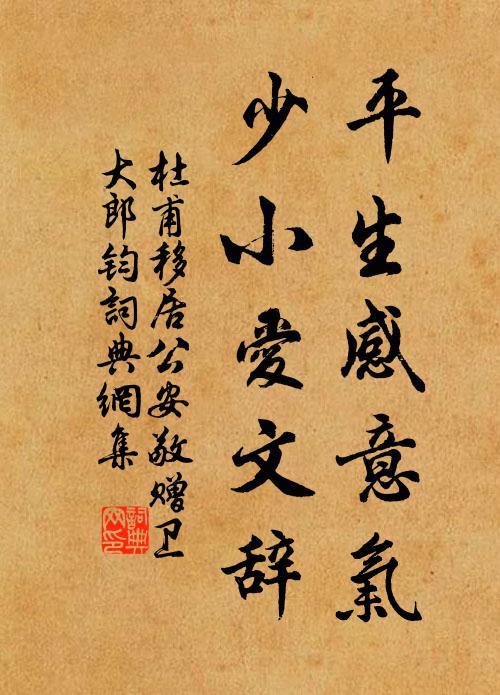 平生感意氣
少小愛文辞
杜甫移居公安敬赠卫
大郎钧詞典網集
詞典
网印